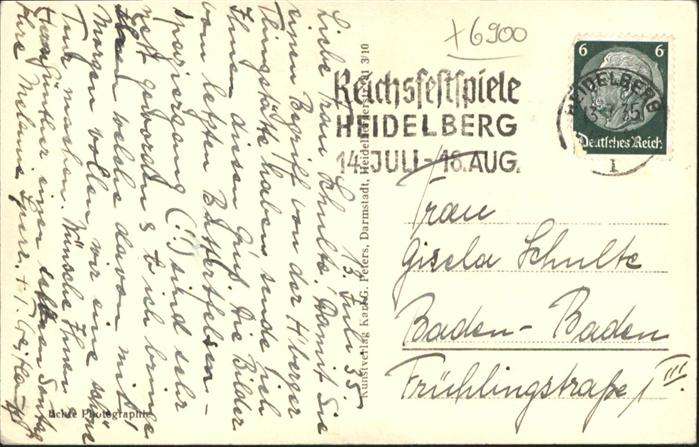 +6900
Reichsfestspiele
HEIDELBERG
14. JULI - 18. AUG.
6 6
HEIDELBERG
Deutsches Reich
1
Frau
Gisela Schulte
Baden-Baden
Frühlingstraße III
Kunstverlag Karl G. Peters, Darmstadt, Heidelbergerstr. 3/10
Echte Photographie
13. Juli 35.
Liebe Frau Schulte, Damit Sie
einen Begriff von der H'berger
Thingstätte haben, sende ich
Ihnen diesen Gruß. Die Bilder
vom letzten
spaziergang (!) sind sehr
nett geworden &  ich bringe
Ihnen welche davon mit!
Morgen wollen wir eine schöne
Tour machen. Wünsche Ihnen
einen schönen Sonntag
Ihre Melanie